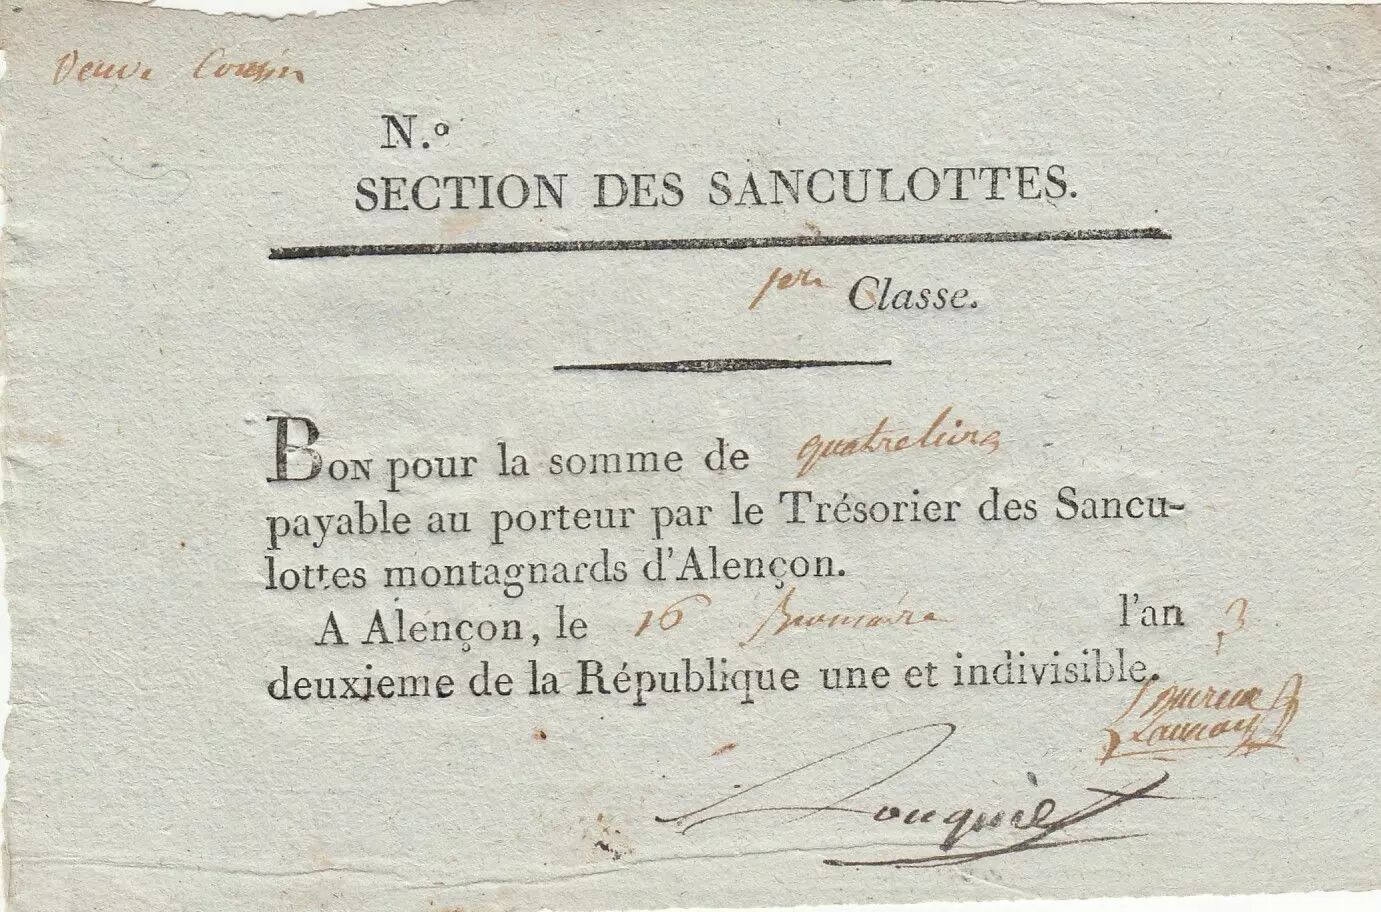 Veuve Cousin
N.º
SECTION DES SANCULOTTES.
1ere Classe.
BON pour la somme de quatre livres
payable au porteur par le Trésorier des Sancu-
lottes montagnards d'Alençon.
A Alençon, le 16 Brumaire l'an 3
deuxieme de la République une et indivisible.